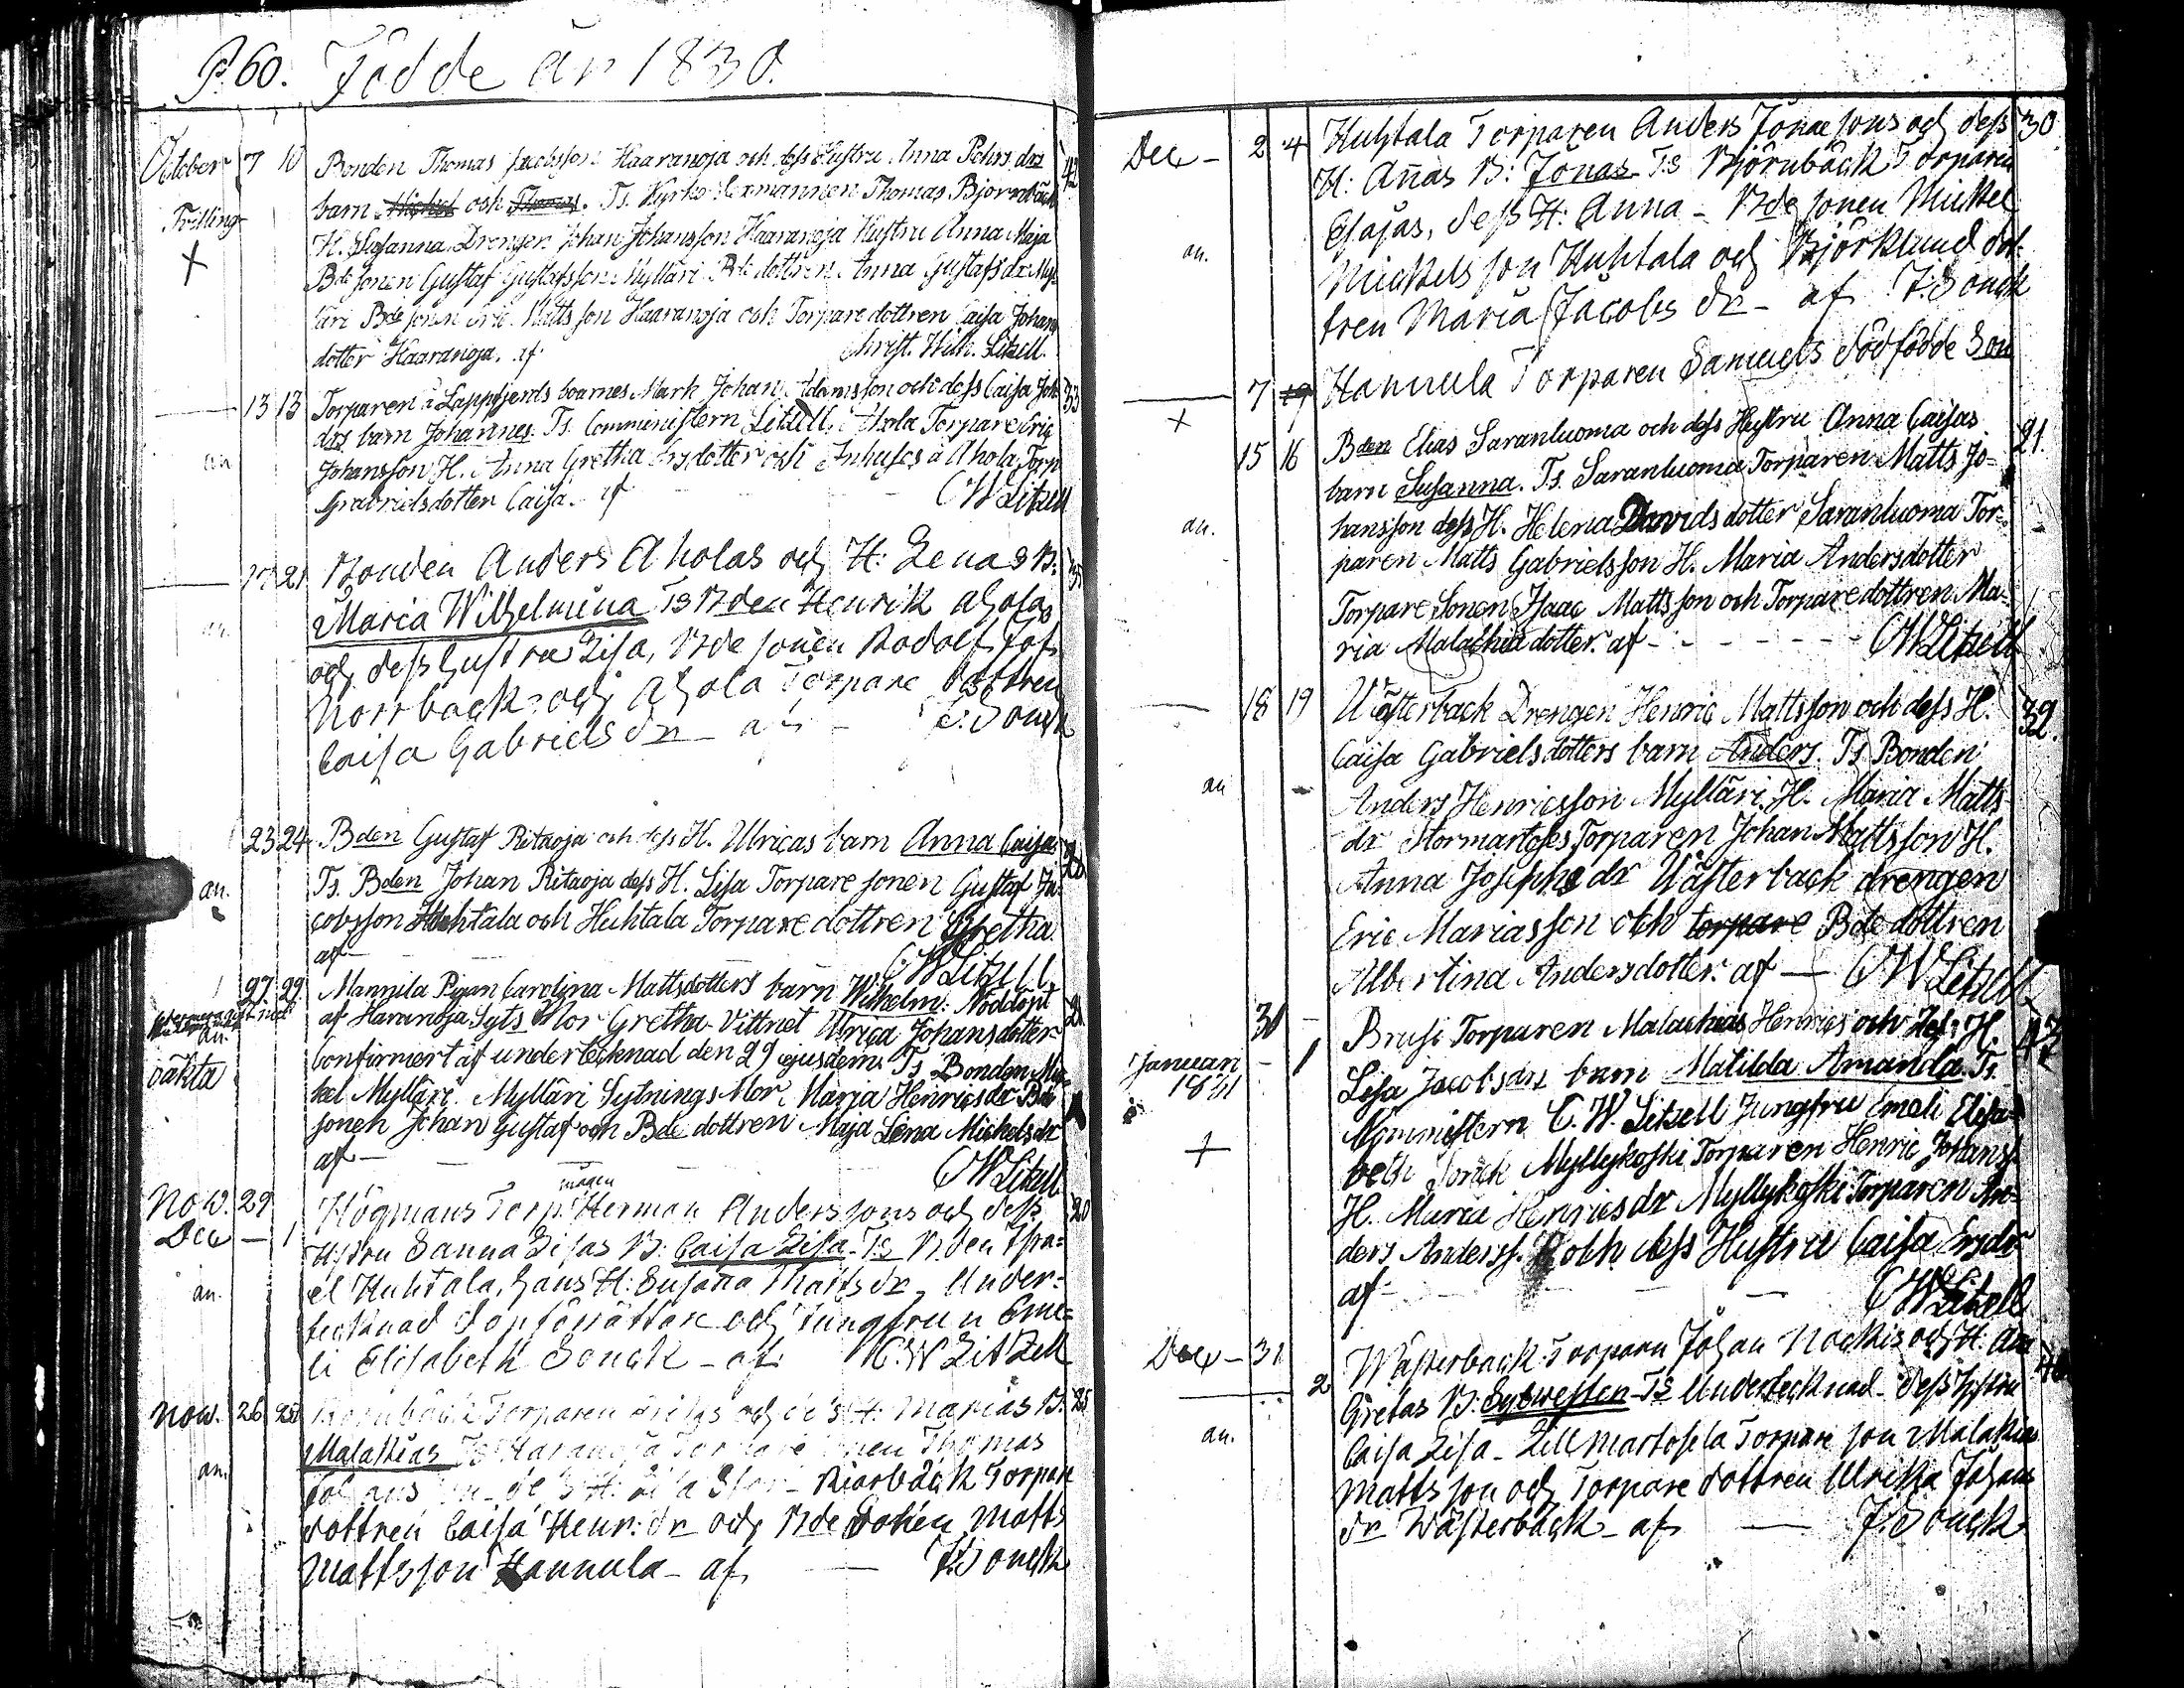 P. 60. Födde år 1830.
October 7 10 Bonden Thomas Jacobsson Haaranoja och dess Hustru Anna Pehrs drs 42
Trilling barn Michel och Thomas. Ts. Kyrko Sexmannen Thomas Björnbäck
H. Susanna Drengen Johan Johansson Haaranoja Hustru Anna Maja
+ Bde sonen Gustaf Gustafsson Mylläri Bde dottren Anna Gustafs dr Myl-
läri Bde sonen Eric Mattsson Haaranoja och Torpare dottren Caisa Johans
dotter Haaranoja. af Christ. Wilh. Litzell.
13 13 Torparen å Lappfjerds boarnes Mark Johan Adamsson och dess Caisa Joh. 33
drs barn Johannes. Ts. Comministern Litzell, Ahola Torpare Eric
an Johansson H. Anna Gretha Ersdotter och Inhyses å Ahola Torp
Gabrielsdotter Caisa. af CW Litzell
17 21 Bonden Anders Aholas och H: Lenas B. 35
an. Maria Wilhelmina Ts Bden Henrik Ahola
och dess hustru Lisa, Bde sonen Rodolf Jos.
Norrback och Ahola Torpare dottren
Caisa Gabriels dr - af - F. Sonck
23 24 Bden Gustaf Ritaoja och dess H. Ulricas barn Anna Caisa
an. Ts. Bden Johan Ritaoja dess H. Lisa Torpare sonen Gustaf Ja-
cobsson Huhtala och Huhtala Torpare dottren Gretha.
af - CW Litzell
27 29 Mannila Pigan Carolina Mattsdotters barn Wilhelm. Nöddöpt 28
af Haranoja Syts Mor Gretha. Vittnet Ulrica Johansdotter
an. Confirmert af undertecknad den 29 ejusdem. Ts Bonden Mic-
oäkta kel Mylläri. Mylläri Sytnings Mor Marja Henricsdr Bde
sonen Johan Gustaf och Bde dottren Maja Lena Michelsdr
af - CW Litzell
mågen
Now. 29 Högmans Torp. Herman Anderssons och dess 20
Dec - 1 Hustru Sanna Lisas B: Caisa Lisa. Ts Bden Isra-
an. el Huhtala, hans H: Susanna Mattsdr, Under-
tecknad Dopförrättare och Jungfrun Eme-
li Elisabeth Sonck - af C.W LitZell
Now. 26 28 Björnbäck Torparen och dess H. Marias B. 25
Malakias Ts Haranoja Torpare sonen Thomas
an. Johansson Björbäck Torpare
dottren Caisa Henr: dr och Bde Sonen Matts
Mattsson Hannula - af - F. Sonck
Dec - 2 4 Huhtala Torparen Anders Jonaesons och dess 30
H: Annas B: Jonas Ts Björnbäck Torparen
an. Esajas, dess H: Anna - Bde sonen Mickel
Mickelsson Huhtala och Björklund dot-
tren Maria Jacobs dr - af F. Sonck
7 19 Hannula Torparen Samuels dödfödde Son
+
15 16 Bden Elias Saranluoma och dess Hustru Anna Caisas 21.
barn Susanna. Ts. Saranluoma Torparen Matts Jo-
an. hansson dess H. Helena Davids dotter Saranluoma Tor-
paren Matts Gabrielsson H. Maria Andersdotter
Torpare Sonen Isaac Mattsson och Torpare dottren Ma-
ria Malachia dotter. af - CW Litzell
18 19 Wästerback Drengen Henric Mattsson och dess H. 32.
Caisa Gabrielsdotters barn Anders. Ts Bonden
an Anders Henricsson Mylläri. H. Maria Matts
dr Stormartoses Torparen Johan Mattsson H.
Anna Josephs dr Wästerback drengen
Eric Mariasson och torpare Bde dottren
Albertina Andersdotter. af - CW Litzell
30 - Brusi Torparen Malachias Henrics och dess H. 43
Januari 1831 - 1 Lisa Jacobsdrs barn Matilda Amanda. Ts.
Comministern C. W. Litzell Jungfru Emeli Elisa-
+ beth Sonck Myllykoski Torparen Henric Johanss
H. Maria Henricsdr Myllykoski Torparen An-
ders Anderss. och dess Hustru Caisa Ersdr
af - CW Litzell
Dec - 31 Wästerback Torparn Johan Nockis och H. An
2 Gretas B: Sylwester Ts Undertecknad dess hustru
an. Caisa Lisa - Lillmartosela Torpare son Malakias
Mattsson och Torpare dottren Ulrika Johans
dr Wästerback - af - F. Sonck